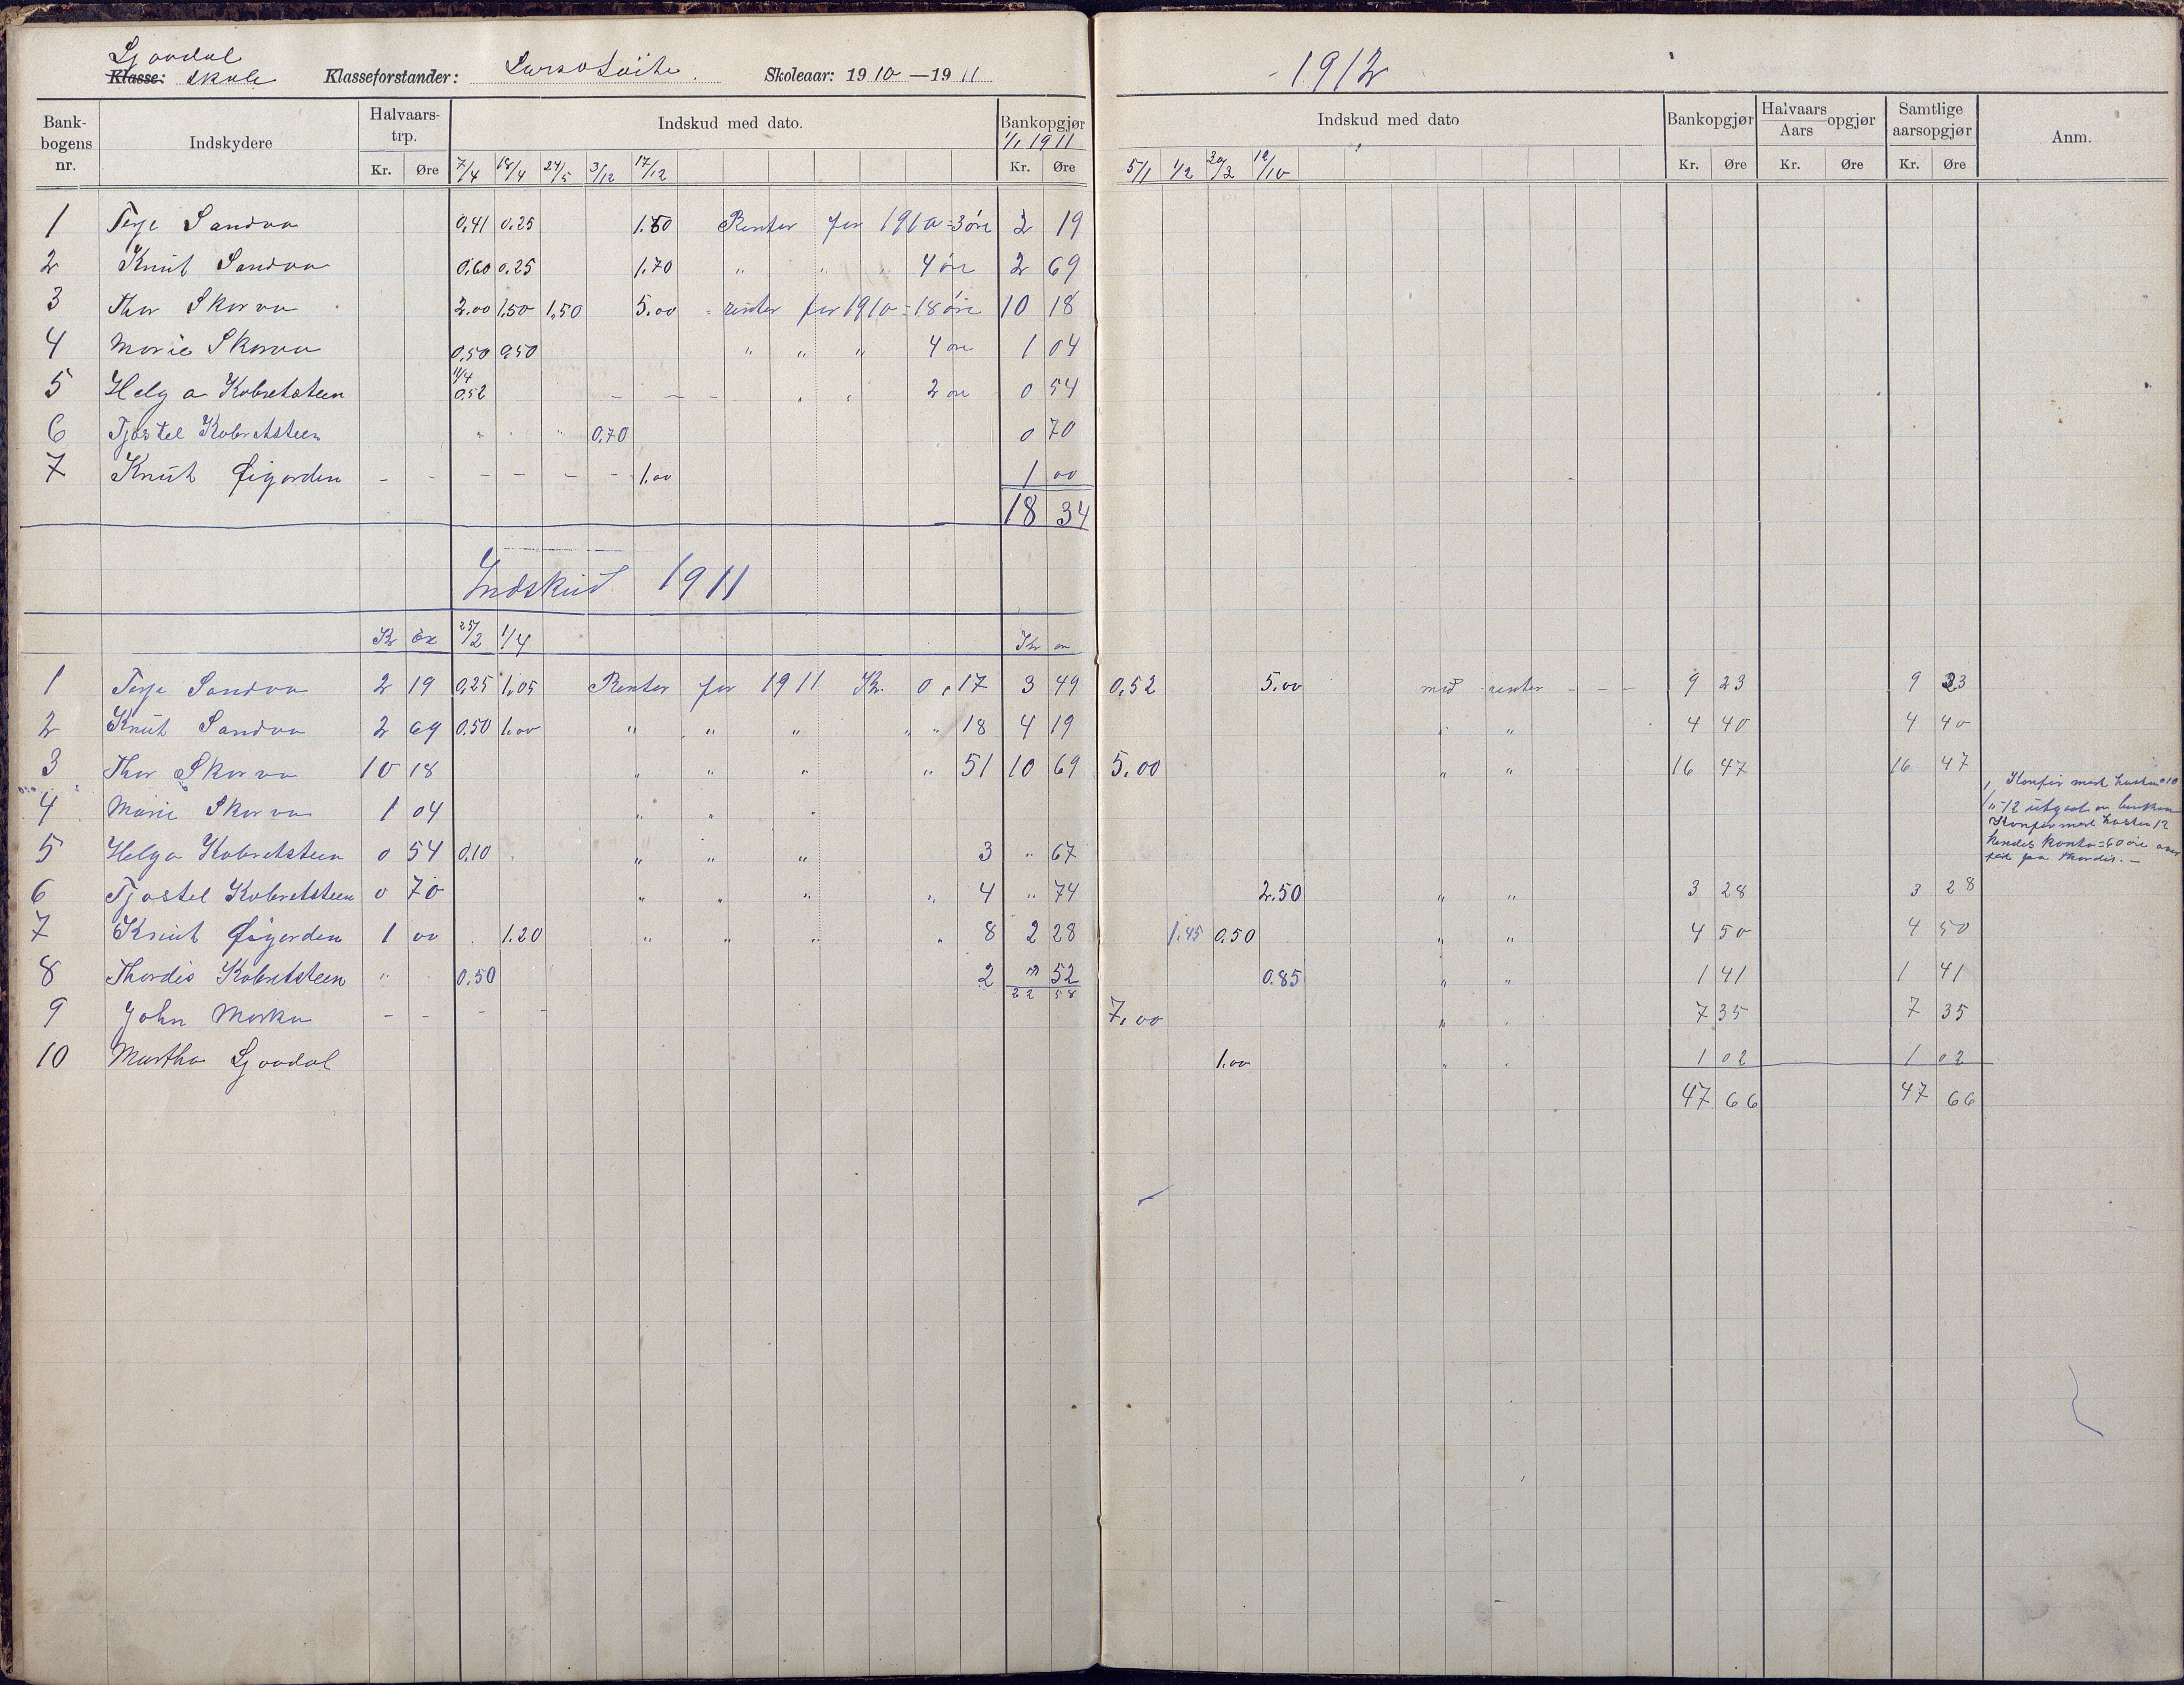 Skole
Klasse: Klasseforstander: Skoleaar: 1910—1911
Bankbogens nr. Indskydere Halvaarstrp. Kr. Øre Indskud med dato. 7/4 18/4 24/5 3/12 17/12 Bankopgjør 1/1 1911 Kr. Øre
1 Terje Sandva 0,41 0.25 1.50 Renter for 1910=3 øre 2 19
2 Knut Sandva 0.60 0.25 1.70 " " " 4 øre 2 69
3 Thor Skorva 2.00 1.50 1,50 5.00 renter for 1910=18 øre 10 18
4 Marie Skorva 0,50 0,50 " " " 4 øre 1 04
5 Helga Kobretsteen 11/4 0.52 – – – " " 2 øre 0 54
6 Tjostel Kobretsteen " " " 0.70 0 70
7 Knut Øigarden – – – – – – 1.00 1 00
18 34
Indskud 1911
Kr øre 25/2 1/4 Kr øre
1 Terje Sandva 2 19 0,25 1,05 Renter for 1911 Kr. 0,17 3 49
2 Knut Sandva 2 69 0.50 1.00 " " " " " 18 4 19
3 Thor Skorva 10 18 " " " " 51 10 69
4 Marie Skorva 1 04 " " "
5 Helga Kobretsteen 0 54 0,10 " " " 3 " 67
6 Tjostel Kobretsteen 0 70 " " " " 4 " 74
7 Knut Øigarden 1 00 1.20 " " " " 8 2 28
8 Thordis Kobretsteen " 0.50 2 " 52
22 58
9 John Morka – – – –
10 Martha Ljosdal
1912
Indskud med dato 5/1 1/2 20/3 12/10 Bankopgjør Kr. Øre Halvaars Aars opgjør Kr. Øre Samtlige aarsopgjør Kr. Øre Anm.
0,52 5.00 med renter – – – 9 23 9 23
" " 4 40 4 40
5.00 " " 16 47 16 47
2.50 " " 3 28 3 28
1.45 0.50 " " 4 50 4 50
0.85 " " 1 41 1 41
7.00 " " 7 35 7 35
1.00 " " 1 02 1 02
47 66 47 66